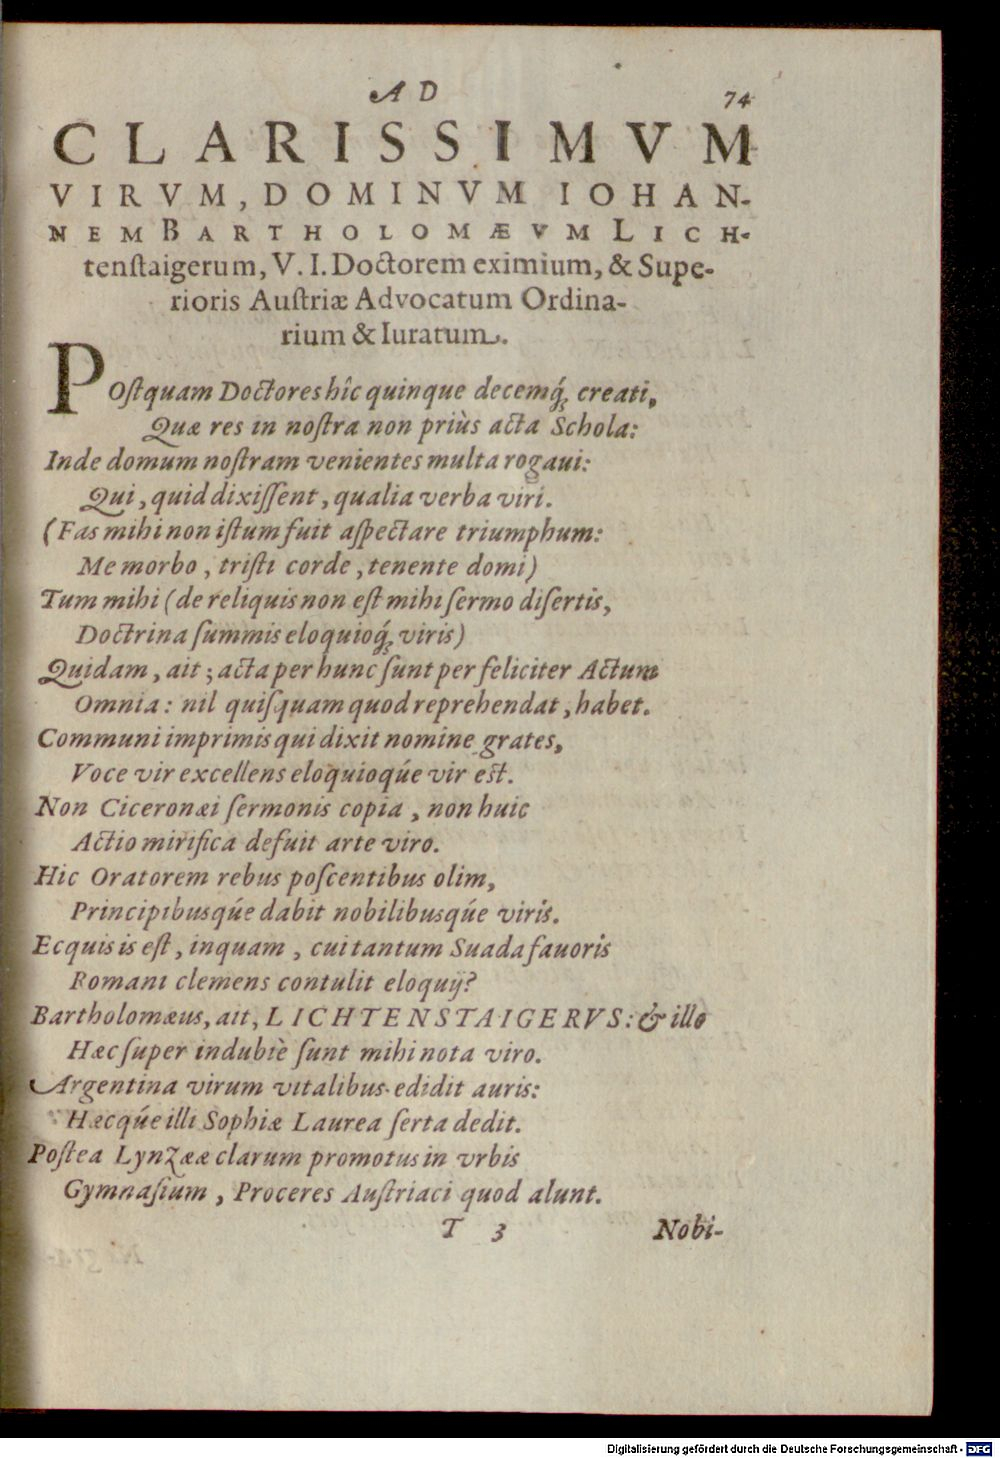 AD
74
CLARISSIMVM
VIRVM, DOMINVM IOHAN-
NEM BARTHOLOMÆVM LICH-
tenſtaigerum, V. I. Doctorem eximium, & Supe-
rioris Auſtriæ Advocatum Ordina-
rium & Iuratum.
POſtquam Doctores hîc quinque decemq́; creati,
Quæ res in noſtra non priùs acta Schola:
Inde domum noſtram venientes multa rogaui:
Qui, quid dixiſſent, qualia verba viri.
(Fas mihi non iſtum fuit aſpectare triumphum:
Me morbo, triſti corde, tenente domi)
Tum mihi (de reliquis non eſt mihi ſermo diſertis,
Doctrina ſummis eloquioq́; viris)
Quidam, ait; acta per hunc ſunt perfeliciter Actum
Omnia: nil quiſquam quod reprehendat, habet.
Communi imprimis qui dixit nomine grates,
Voce vir excellens eloquioqúe vir eſt.
Non Ciceronæi ſermonis copia, non huic
Actio mirifica defuit arte viro.
Hic Oratorem rebus poſcentibus olim,
Principibusqúe dabit nobilibusqúe viris.
Ecquis is eſt, inquam, cui tantum Suada fauoris
Romani clemens contulit eloquij?
Bartholomæus, ait, LICHTENSTAIGERVS: & illo
Hæc ſuper indubiè ſunt mihi nota viro.
Argentina virum vitalibus edidit auris:
Hæcqúe illi Sophiæ Laurea ſerta dedit.
Poſtea Lynzææ clarum promotus in vrbis
Gymnaſium, Proceres Auſtriaci quod alunt.
T 3
Nobi-
Digitalisierung gefördert durch die Deutsche Forschungsgemeinschaft - DFG